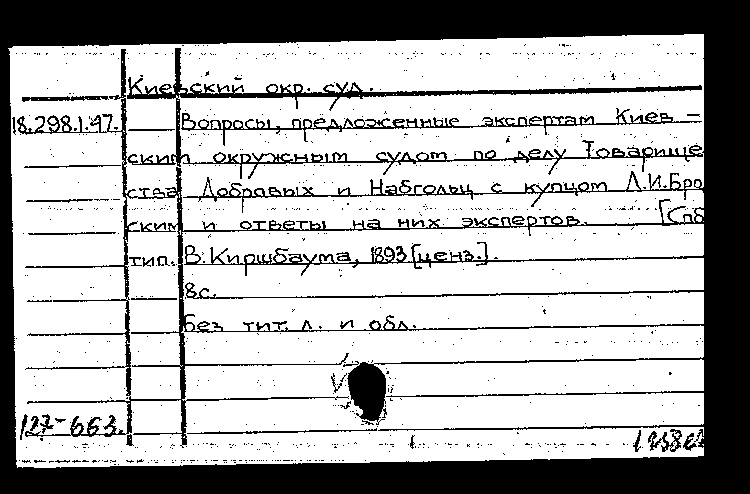 Киевский окр. суд.
18.298.1.47. Вопросы, предложенные экспертам Киев –
ским окружным судом по делу Товарище
ства Добравых и Набгольц с купцом Л.И.Бро
ским и ответы на них экспертов. [Спб
тип. В. Киршбаума, 1893 [ценз.].
8с.
без тит. л. и обл.
127-663.